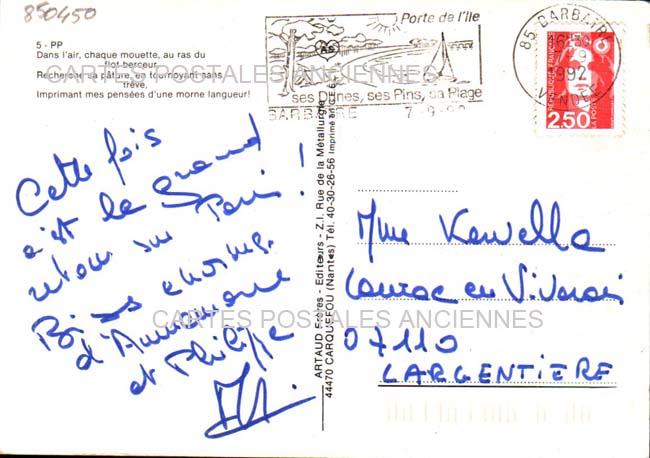 850450
5 - PP
Dans l'air, chaque mouette, au ras du
flot berceur,
Recherche sa pâture, en tournoyant sans
trêve,
Imprimant mes pensées d'une morne langueur!
Porte de l'Ile
ses Dunes, ses Pins, sa Plage
BARBATRE 7-9-92
85 BARBATRE
1992
VENDEE
REPUBLIQUE FRANCAISE
LA POSTE
2,50
CARTES POSTALES ANCIENNES
Cette fois
c'est le grand
retour sur Paris !
Bises énormes
d'Annamone
et Philippe
ARTAUD Frères - Editeurs - Z.I. Rue de la Métallurgie
44470 CARQUEFOU (Nantes) Tél. 40-30-26-56 Imprimé en C.E.E.
Mme Kervella
Laurac en Vivarais
07110
LARGENTIERE
CARTES POSTALES ANCIENNES